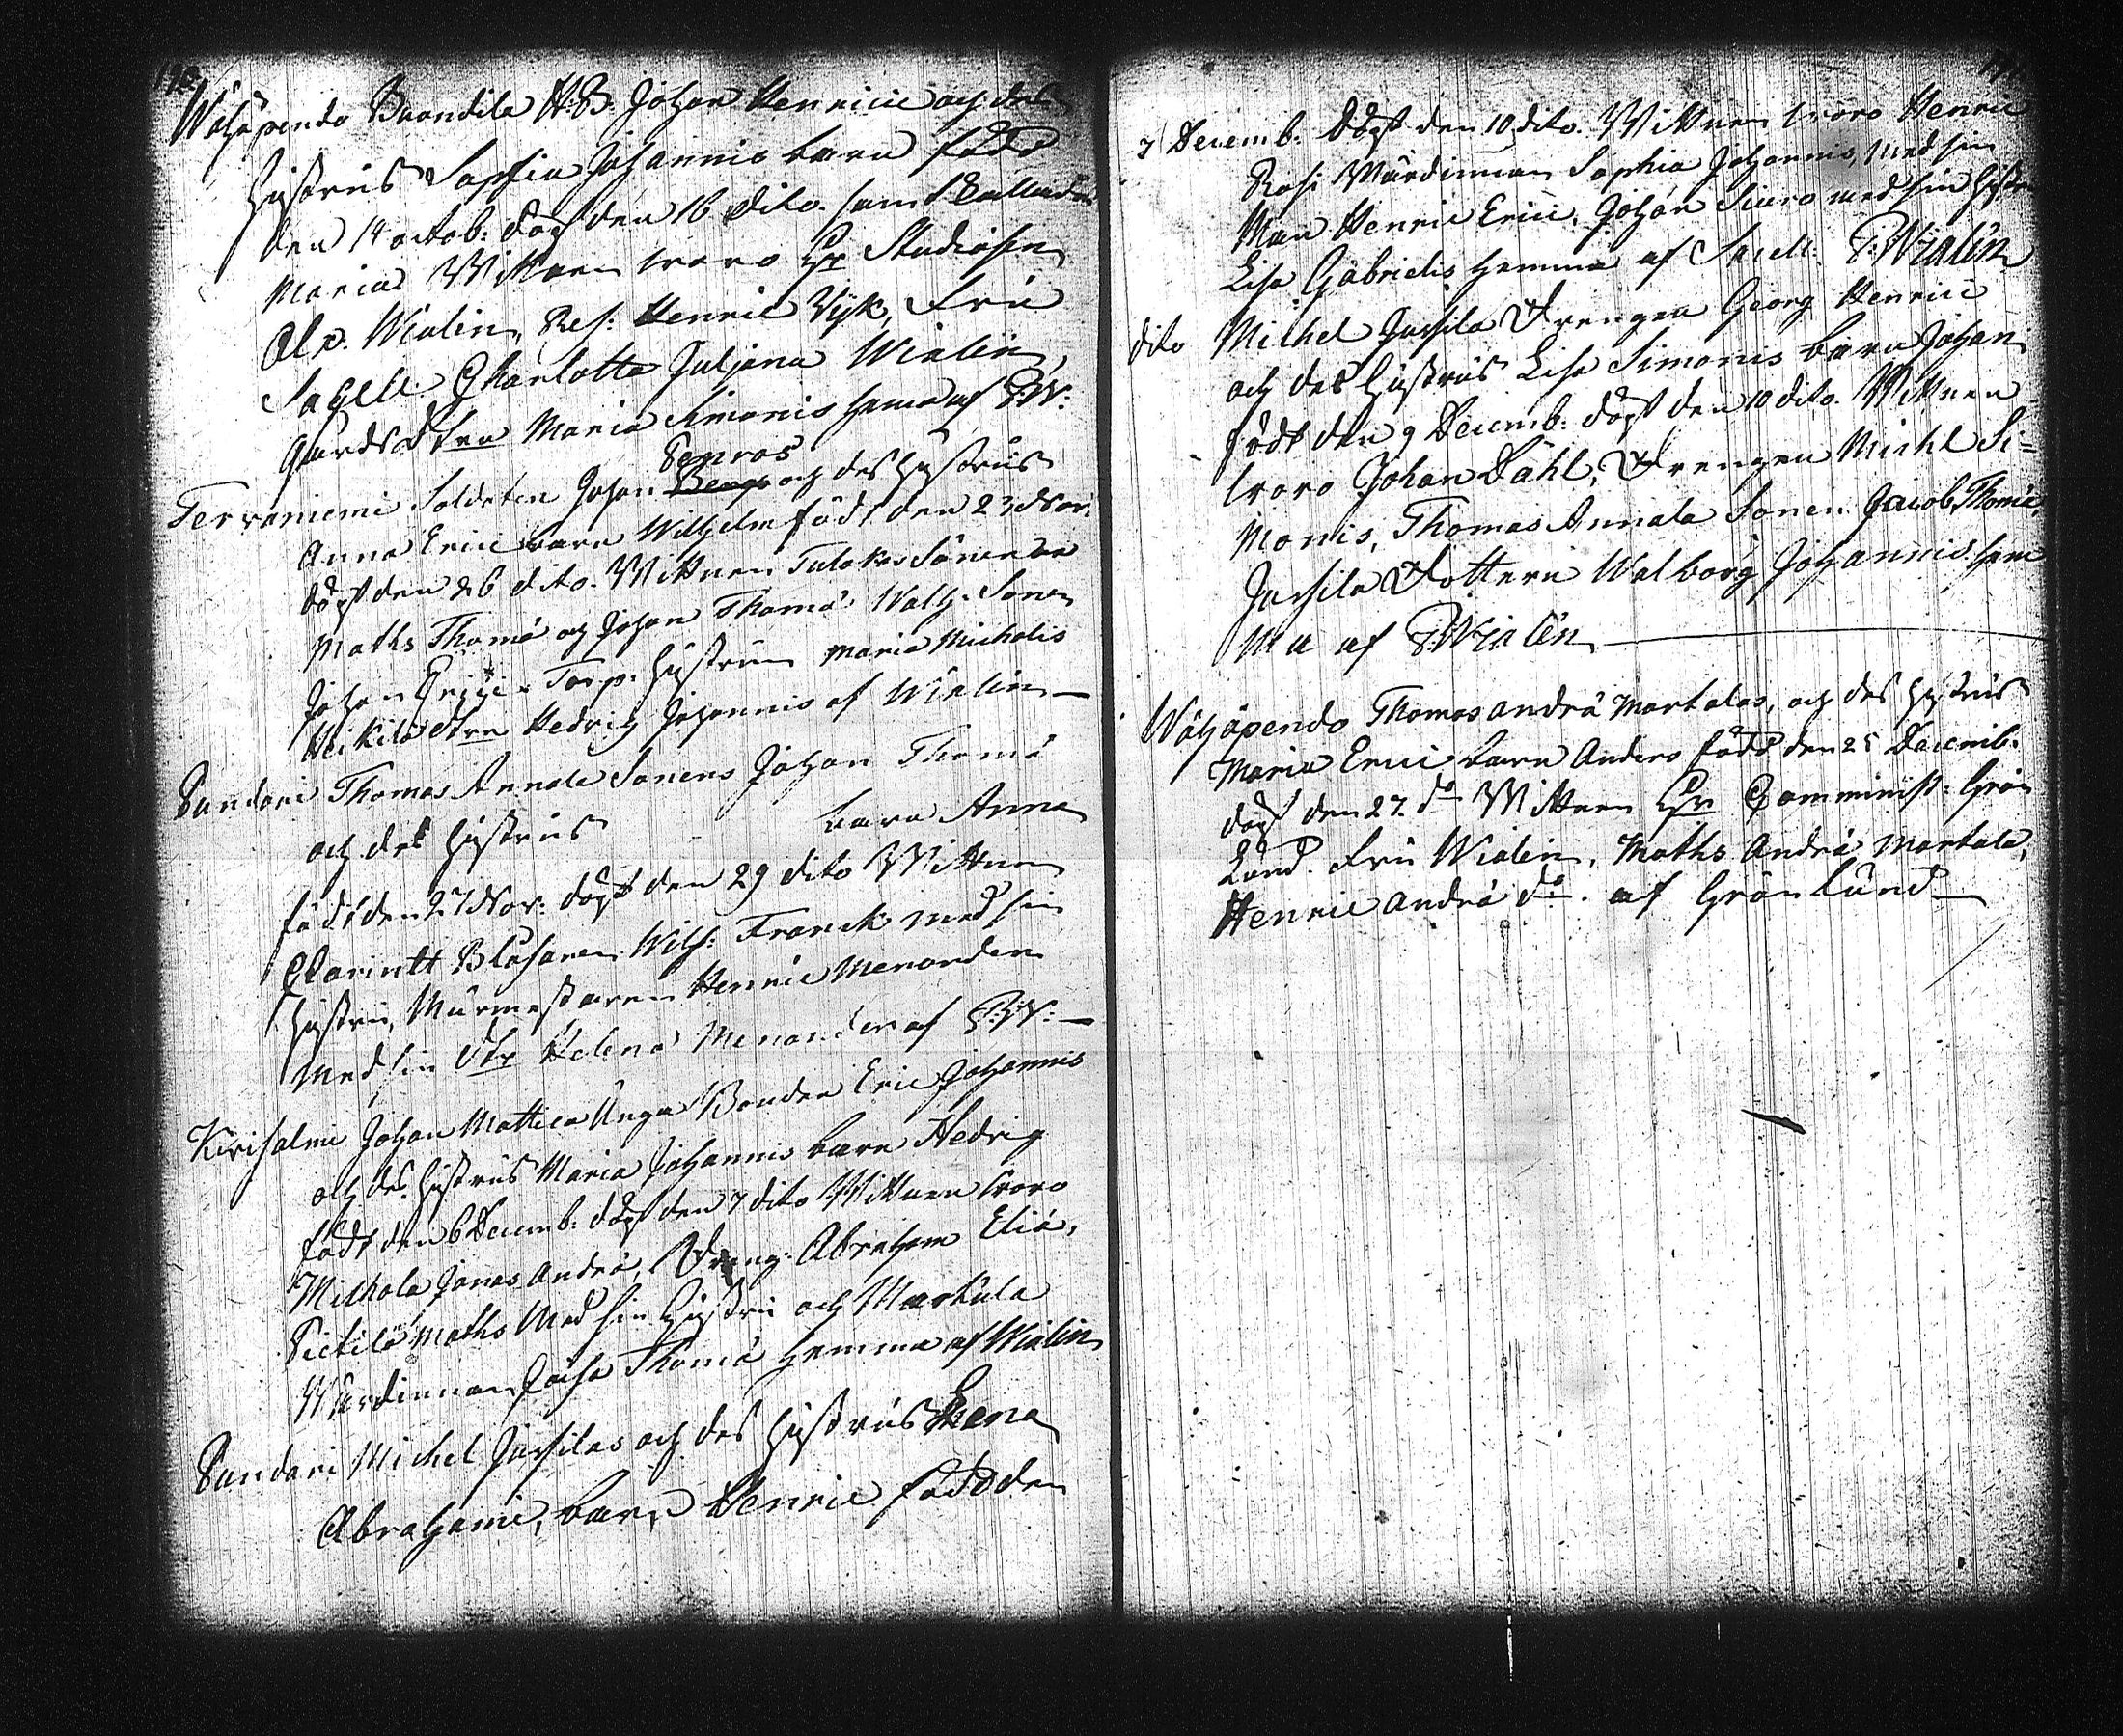 Wähäpendo Brandila H:B: Johan Henrici och des
hustrus Sophia Johannis barn född
den 14 octob: döpt den 16 dito. som kallades
Maria Wittnen woro Hr Studiosen
Al. Wialin, Ref: Henric Vyk, Fru
Sacell. Charlotta Juljana Wialin,
Gårds Dtrn Maria Simonis hema af P:W:
Terraniemi Soldaten Johan Sepros och des hustrus
Anna Erici barn Wilhelm född den 23 Nov:
döpt den 26 dito. Wittnen Tulokas Sönerne
Maths Thomæ och Johan Thomæ Wälj: Sonen
Johan Erici. Torp: hustrun Maria Michelis
Heikilä dtrn Hedvig Johannis af Wialin —
Sundari Thomas Annala Sonens Johan Thomæ
och des hustrus barn Anna
född den 27 Nov: döpt den 29 dito Wittnen
Clarinett Blåsaren Wilh: Franck med sin
hustru, Murmestaren Henric Menander
med sin Dtr Helena Menander af P:W: —
Kirisalmi Johan Mattica Unga Bonden Eric Johannis
och des hustrus Maria Johannis barn Hedvig
född den 6 Decemb: döpt den 7 dito Wittnen woro
Michola Jonas Andræ, Dreng: Abraham Eliæ,
Pietilä Maths med sin hustru och Markula
Wärdinnan Caisa Thomæ hemma af Wialin
Sundari Michel Jussilas och des hustrus Lena
Abrahami, barn Henric född den
7 Decemb: döpt den 10 dito. Wittnen woro Henric
Rosi Wärdinnan Sophia Johannis, med sin
Man Henric Erici. Johan Siuro med sin hustru
Lisa Gabrielis hemma af Sacell. P:Wialin
dito Michel Jussila Drengen Georg Henrici
och des hustrus Lisa Simonis barn Johan
född den 9 Decemb: döpt den 10 dito. Wittnen
woro Johan Dahl, Drengen Michl Si-
monis, Thomas Annala Sonen Jacob Thomæ,
Jussila Dottern Walborg Johannis hem
ma af P:Wialin
Wähäpendo Thomas Andræ Martalas, och des hustrus
Maria Erici barn Anders född den 25 Decemb:
döpt den 27. do Wittnen Hr Comminist: Grön
Lund. Fru Wialin, Maths Andræ Martala,
Henric Andræ do. af Grönlund